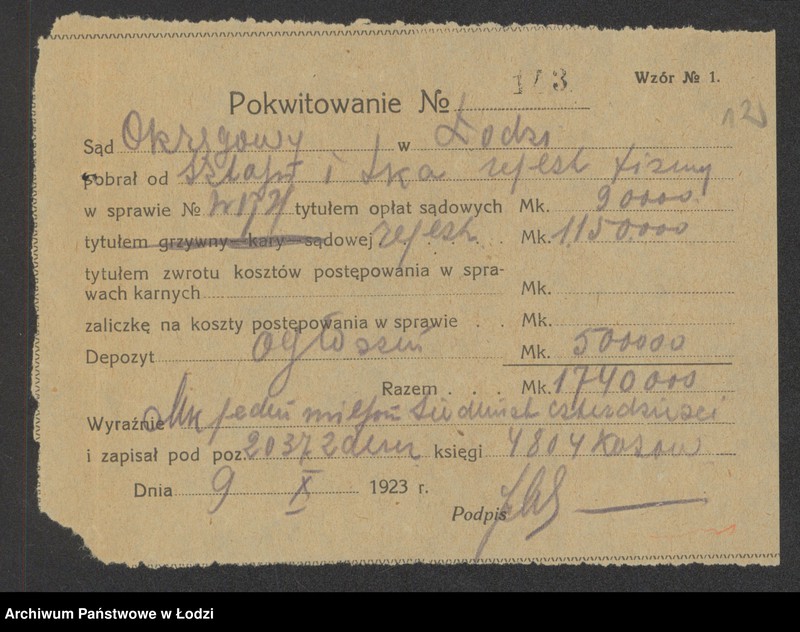 Wzór № 1.
Pokwitowanie № 143
Sąd Okręgowy w Łodzi
pobrał od i Ska rejestr firmy
w sprawie № tytułem opłat sądowych Mk. 90000
tytułem grzywny kary sądowej rejestr Mk. 1150.000
tytułem zwrotu kosztów postępowania w spra-
wach karnych Mk.
zaliczkę na koszty postępowania w sprawie Mk.
Depozyt ogłoszeń Mk. 500000
Razem Mk. 1740000
Wyraźnie Mk jeden miljon siedmset czterdzieści
i zapisał pod poz. 2037 księgi 4804
Dnia 9 X 1923 r.
Podpis
Archiwum Państwowe w Łodzi